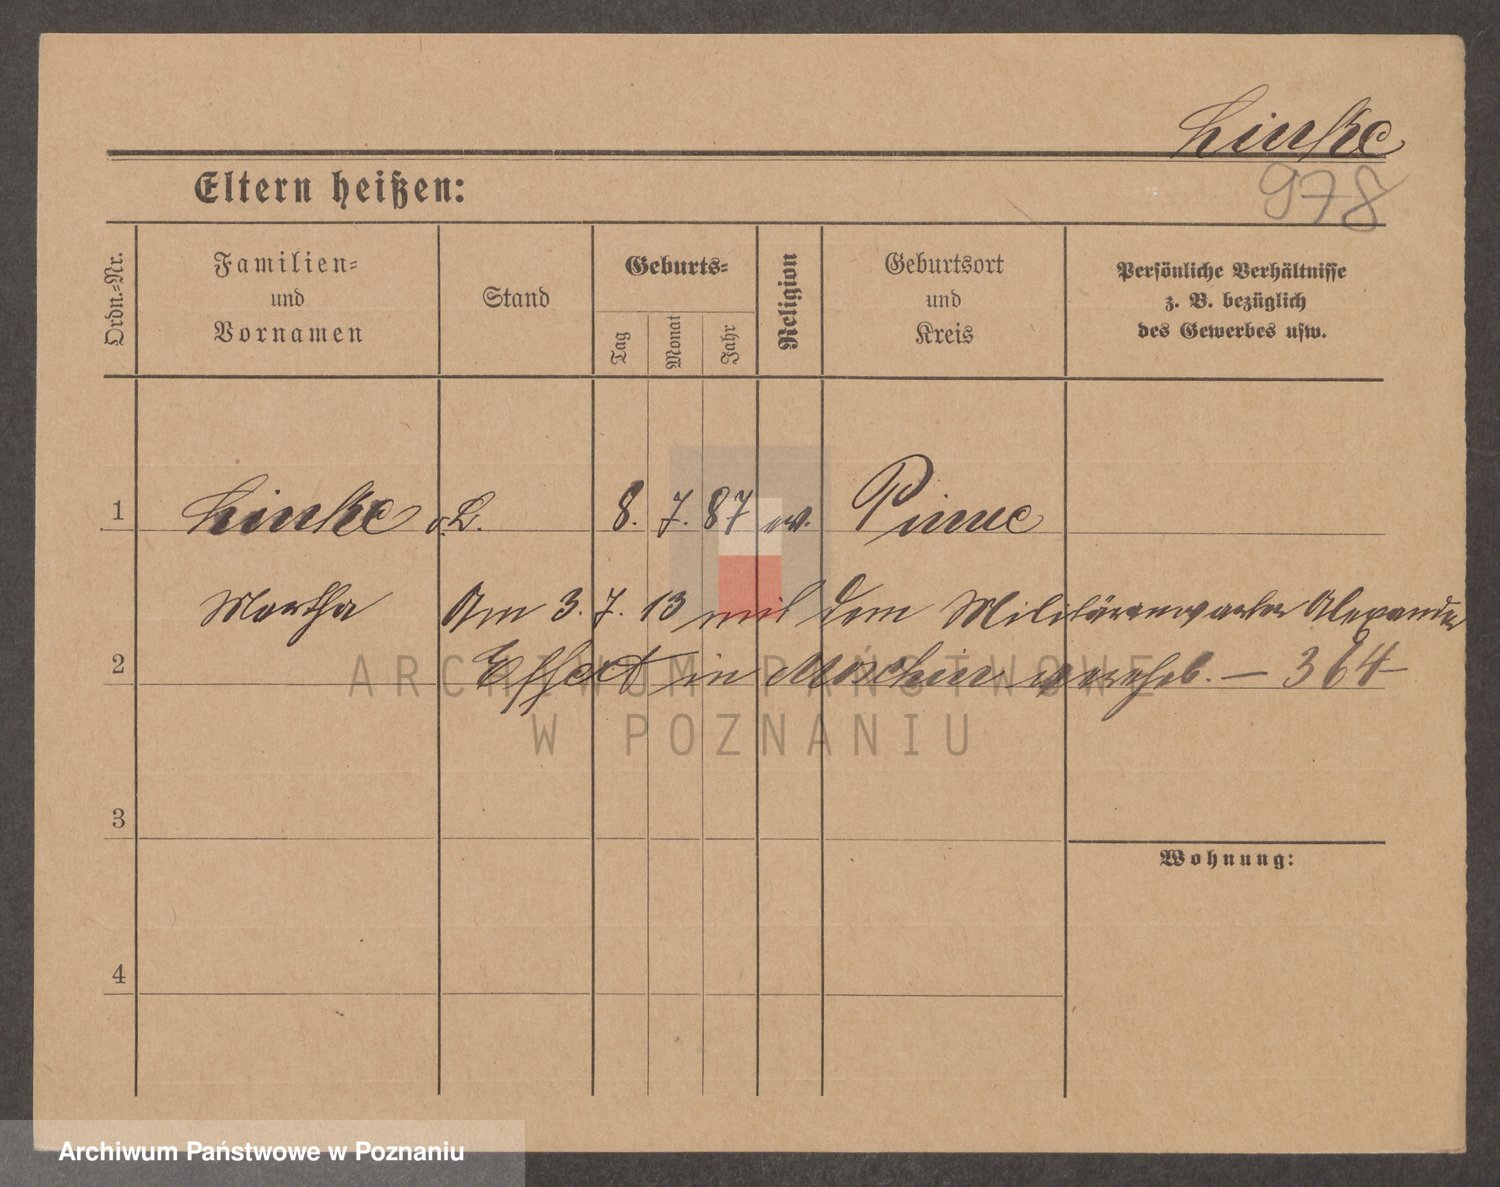 Linke
978
Eltern heißen:
Ordn.-Nr.
Familien-
und
Vornamen
Stand
Geburts-
Tag
Monat
Jahr
Religion
Geburtsort
und
Kreis
Persönliche Verhältnisse
z. B. bezüglich
des Gewerbes usw.
1 Linke o.B. 8. 7. 87 ev. Pinne
Martha Am 3. 7. 13 mit dem Militäranwärter Alexander
2 in Moschin vereh. – 364
ARCHIWUM PAŃSTWOWE
W POZNANIU
3
Wohnung:
4
Archiwum Państwowe w Poznaniu